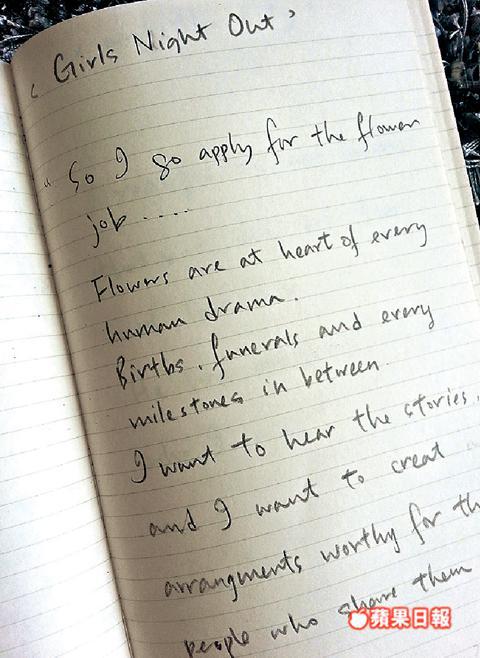 ‘ Girls Night Out ’
" So I go apply for the flower
job ....
Flowers are at heart of every
human drama.
Births, funerals and every
milestones in between
I want to hear the stories,
and I want to creat
arrangments worthy for th
people who share them
蘋果日報